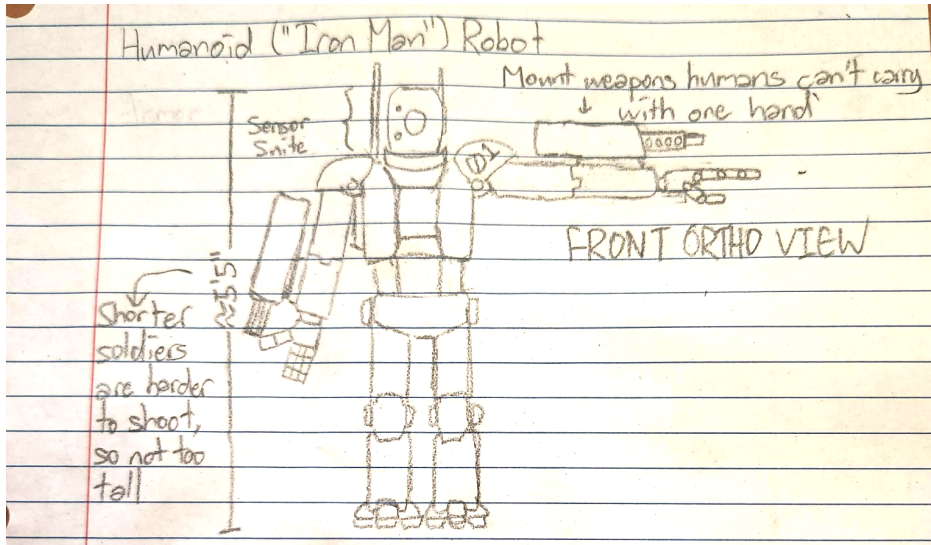 Humanoid ("Iron Man") Robot
Mount weapons humans can't carry
with one hand
Sensor
Suite
01
FRONT ORTHO VIEW
≈5'5"
Shorter
soldiers
are harder
to shoot,
so not too
tall